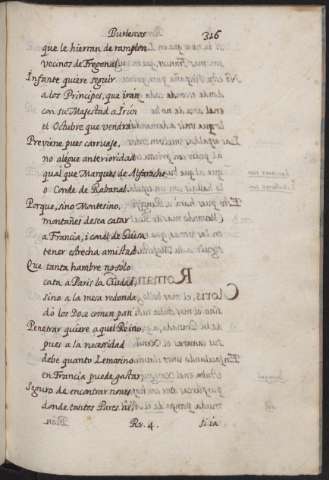 Burlescos 326
que le hierran de ramplon
vecinos de Fregenal.
Infante quiere seguir
a los Principes, que iran
con su Magestad a Irún
el Octubre, que vendrá.
Previene, pues carruaje,
no alegue anterioridad
qual que Marques de Alfarache
o Conde de Rabanal.
Porque, sino Montesino,
montañes desea catar
a Francia, i con
tener estrecha amistad
Que tanta hambre no solo
cata a Paris la Ciudad,
sino a la mesa redonda,
dò los Doce comen pan
Penetrar quiere a aquel Reino,
pues a la necesidad
debe quanto Lemosino
en Francia puede gastar.
Seguro de encontrar
donde tantos Pares
Rr. 4.